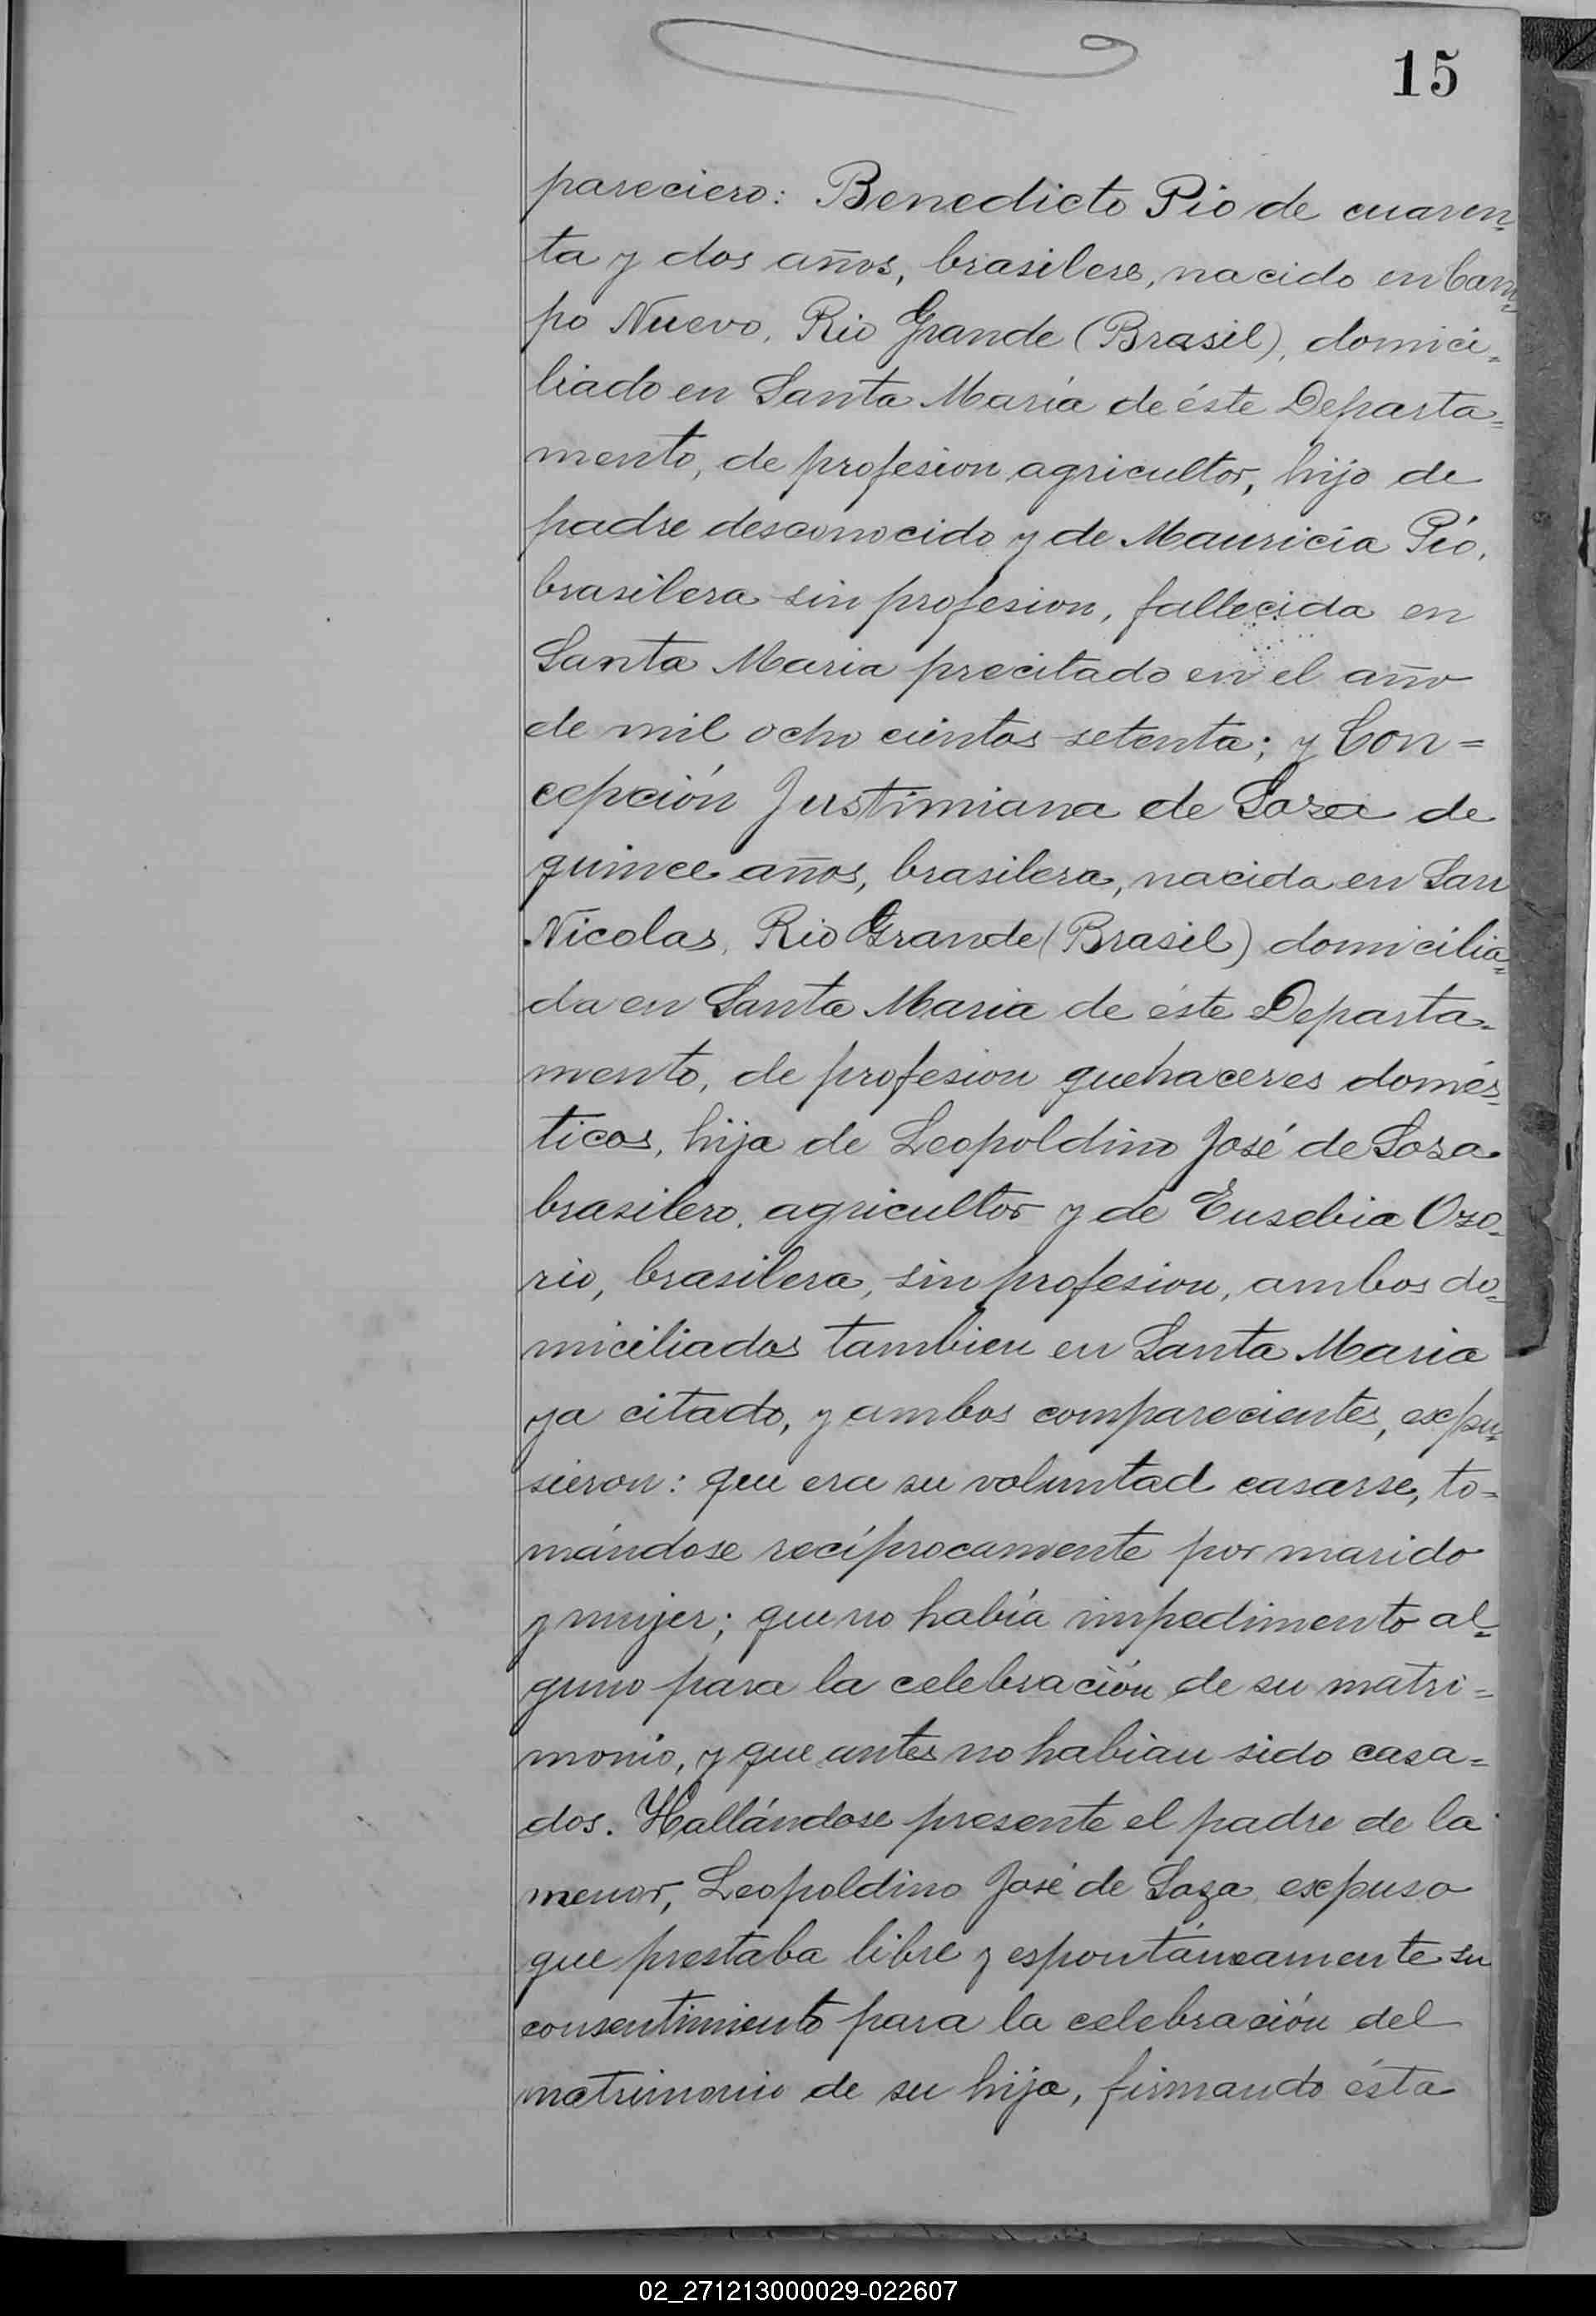 15
pareciero: Benedicto Pio de cuaren-
ta y dos años, brasilero, nacido en Cam-
po Nuevo, Rio Grande (Brasil), domici-
liado en Santa María de éste Departa=
mento, de profesion agricultor, hijo de
padre desconocido y de Mauricia Pío,
brasilera sin profesion, fallecida en
Santa Maria precitado en el año
de mil ocho cientos setenta; y Con=
cepción Justimiana de Soza de
quince años, brasilera, nacida en San
Nicolas, Rio Grande (Brasil) domicilia-
da en Santa Maria de éste Departa-
mento, de profesion quehaceres domés-
ticos, hija de Leopoldino José de Soza
brasilero, agricultor y de Eusebia Ozo-
rio, brasilera, sin profesion, ambos do-
miciliados tambien en Santa Maria
ya citado, y ambos comparecientes, expu-
sieron: que era su voluntad casarse, to-
mándose recíprocamente por marido
y mujer; que no había impedimento al-
guno para la celebración de su matri=
monio, y que antes no habian sido casa=
dos. Hallándose presente el padre de la
menor, Leopoldino José de Soza expuso
que prestaba libre y espontáneamente su
consentimiento para la celebración del
matrimonio de su hija, firmando ésta
02_271213000029-022607